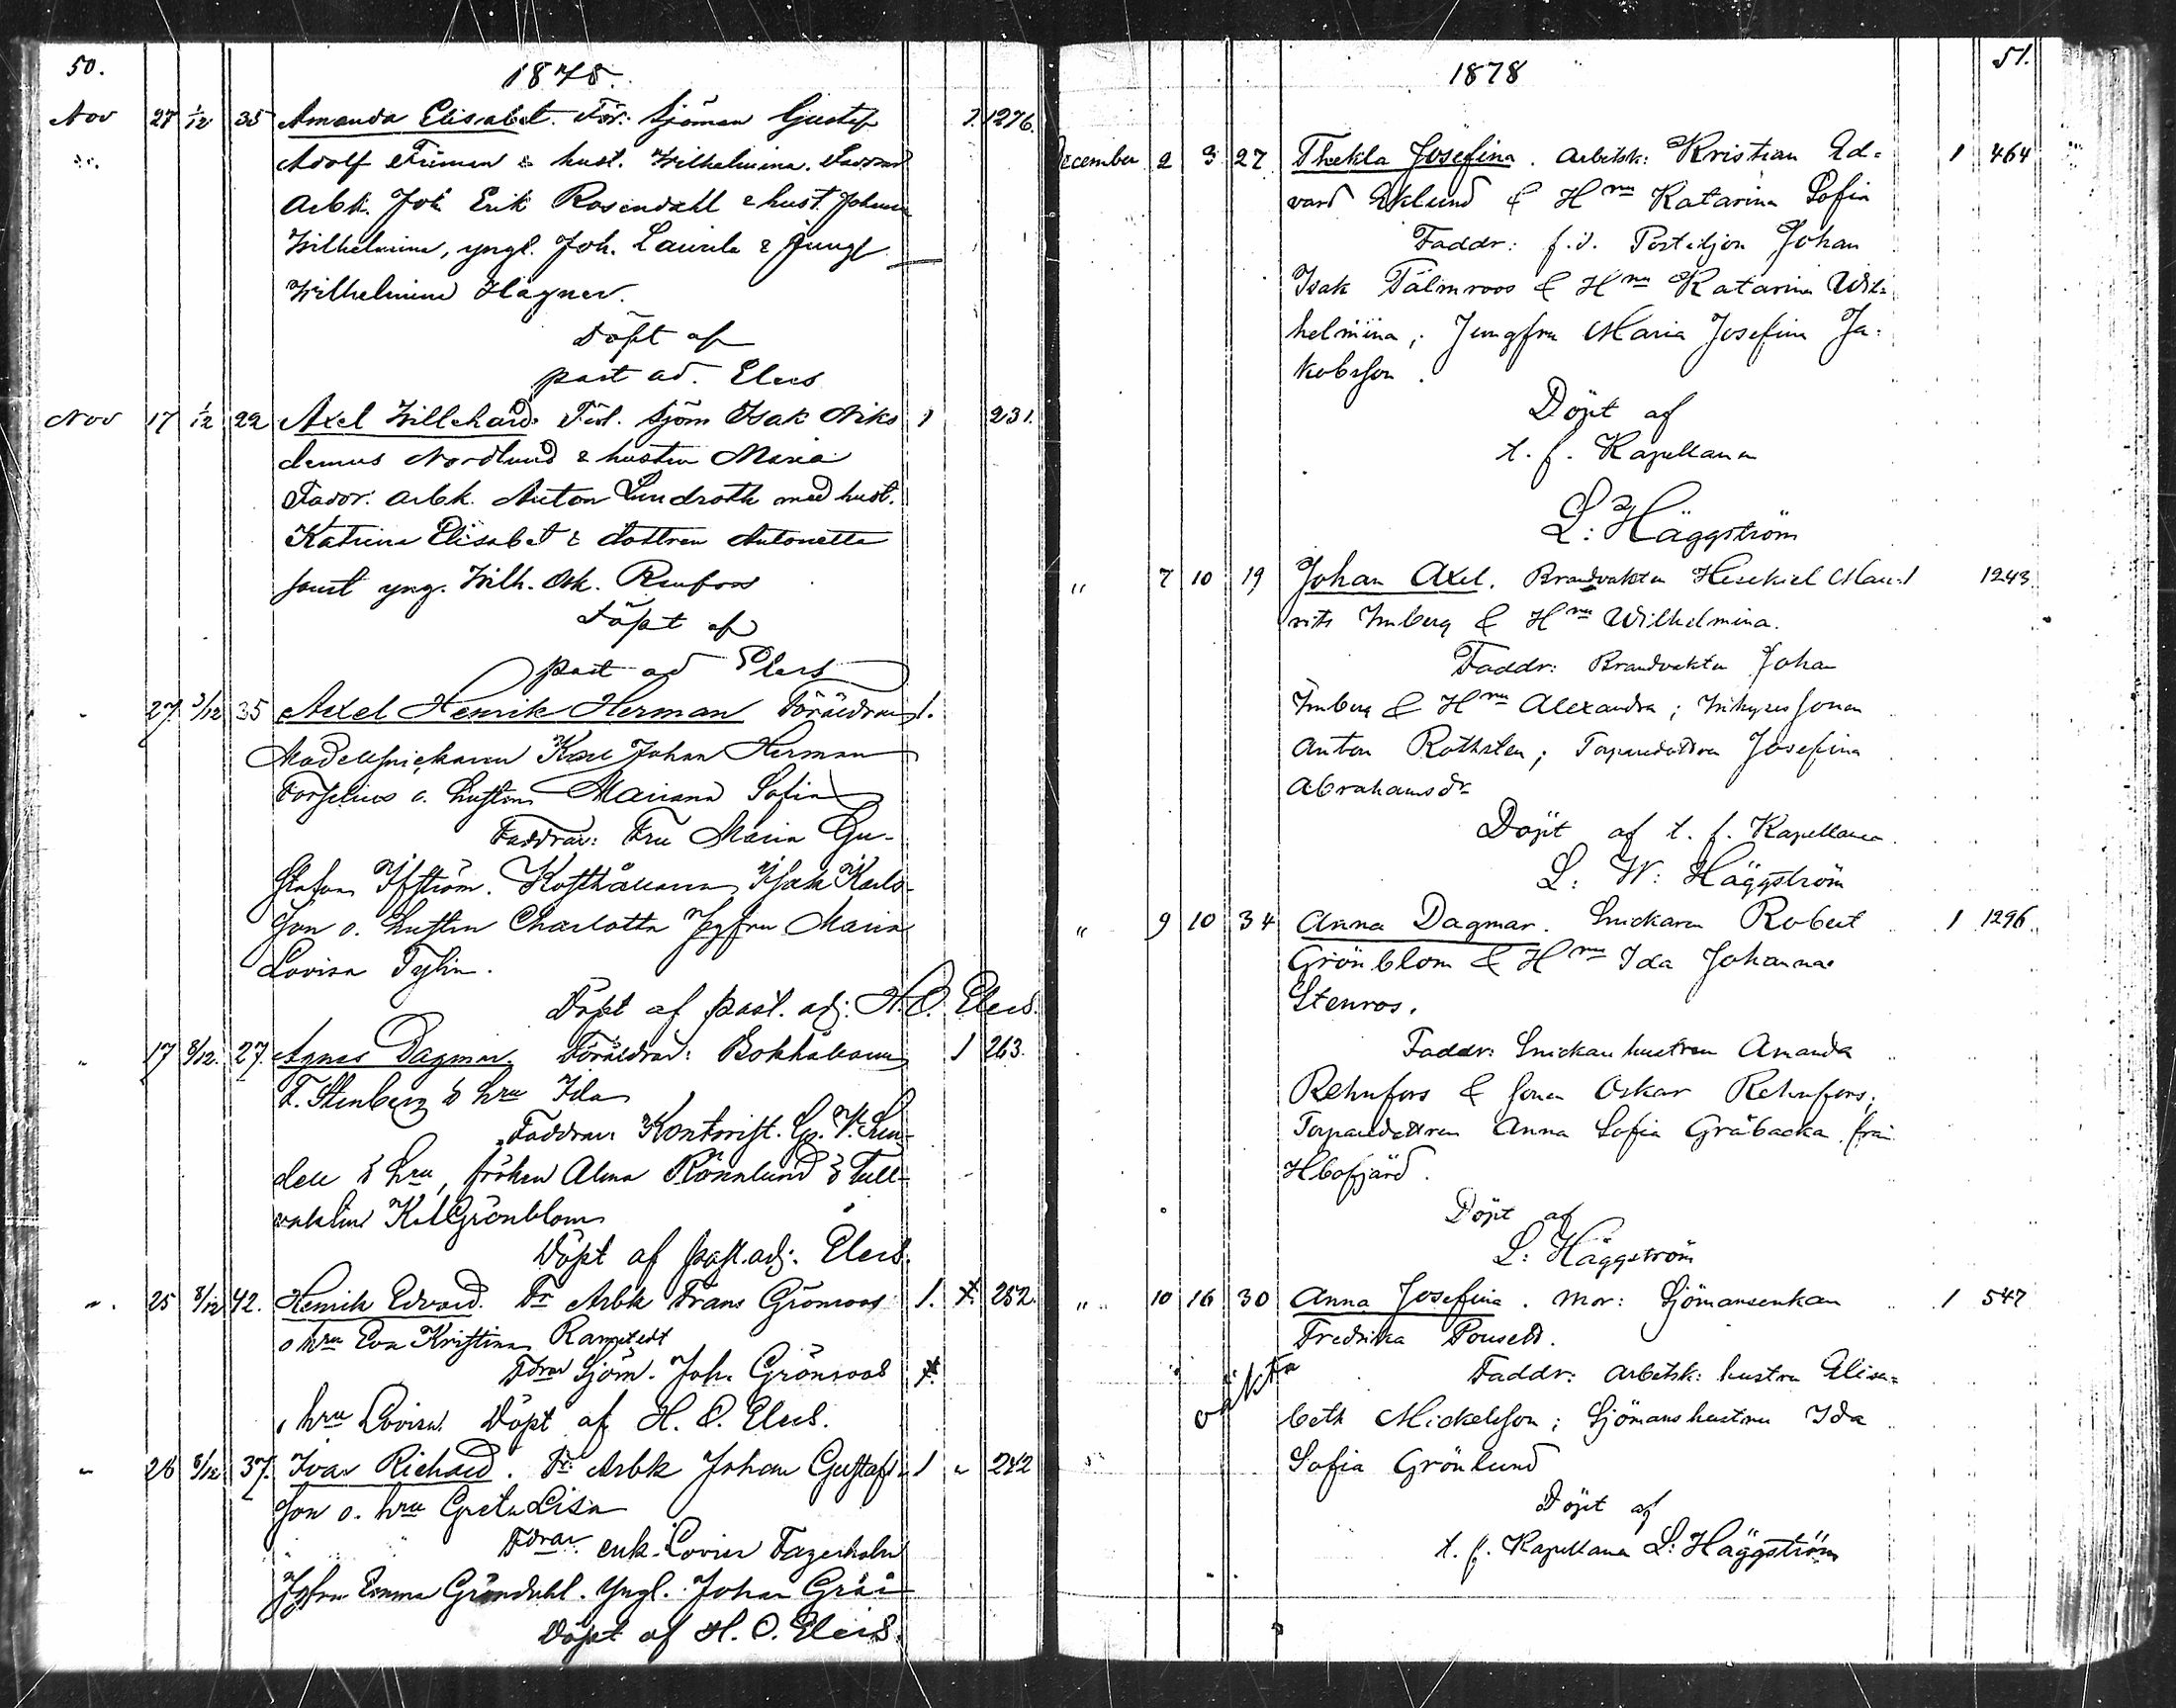 50.
1878.
Nov 27 1/12 35 Amanda Elisabet. För: Sjöman Gustaf 1. 1276.
Adolf Friman & hust. Wilhelmina. Faddrar
Arbk. Joh. Erik Rosendahl & hust. Johanna
Wilhelmina, yngl. Joh. Laurila & Jungf.
Wilhelmina Hägner.
Döpt af
past ad. Elers
Nov 17 1/12 22 Axel Willehard. Förl. Sjöm Isak Niko 1 231.
demus Nordlund & hustru Maria
Faddr: arbk. Anton Lindroth med hust.
Katrina Elisabet & dottren Antonetta
samt yng. Wilh. Osk. Renfors
Döpt af
past ad Elers
27 3/12 35 Axel Henrik Herman Föräldrar 1.
Modellsnickaren Karl Johan Herman
Forselius o. hustrun Mariana Sofia
Faddrar: Fru Maria Gu-
stafva Ifström. Kosthållaren Isak Karls-
son o. hustru Charlotta Jgfru Maria
Lovisa Tylin.
Döpt af past. adj. H. O. Elers.
17 8/12. 27. Agnes Dagmar. Föräldrar: Bokhållaren 1 263.
F. Stenberg & hru Ida
Faddrar Kontorist. G. W. Lin-
dell & hru, fröken Alma Rönnlund & Tull-
vaktm K A Grönblom
Döpt af past. adj. Elers.
25 8/12 42. Henrik Edvard. Fr Arbk Frans Grönroos 1. x. 252.
o hru Eva Kristina Ramstedt
Fdrar Sjöm. Joh. Grönroos x.
o hru Lovisa. Döpt af H. O. Elers.
26 8/12 37. Ivar Richard. Fr. Arbk Johan Gustafs- 1 " 242
son o. hru Greta Lisa
Fdrar enk. Lovisa Fagerholm
Jgfru Emma Gröndahl. Yngl. Johan Grää
Döpt af H. O. Elers.
51.
1878
December 2 3 27 Thekla Josefina. Arbetsk: Kristian Ed- 1 464
vard Eklund & Hru Katarina Sofia
Faddr: f.d. Postiljon Johan
Isak Tälmroos & Hru Katarina Wil-
helmina; Jungfru Maria Josefina Ja-
kobsson.
Döpt af
t. f. Kapellanen
L: Häggström
" 7 10 19 Johan Axel. Brandvakten Hesekiel Mau- 1 1243.
rits Imberg & Hru Wilhelmina.
Faddr: Brandvakten Johan
Imberg & Hru Alexandra; Inhyses sonen
Anton Rothsten; Torparedottren Josefina
Abrahamsdr
Döpt af t. f. Kapellanen
L: W: Häggström
" 9 10 34 Anna Dagmar. Snickaren Robert 1 1296.
Grönblom & Hru Ida Johanna
Stenros.
Faddr: Snickarehustrun Amanda
Rehnfors & sonen Oskar Rehnfors;
Torparedottren Anna Sofia Gräbacka från
Hbofjärd.
Döpt af
L: Häggström
" 10 16 30 Anna Josefina. Mor: Sjömansenkan 1 547
Fredrika Pousett.
oäkta Faddr: Arbetsk: hustru Elisa-
beth Mickelsson; Sjömanshustrun Ida
Sofia Grönlund
Döpt af
t. f. Kapellanen L: Häggström